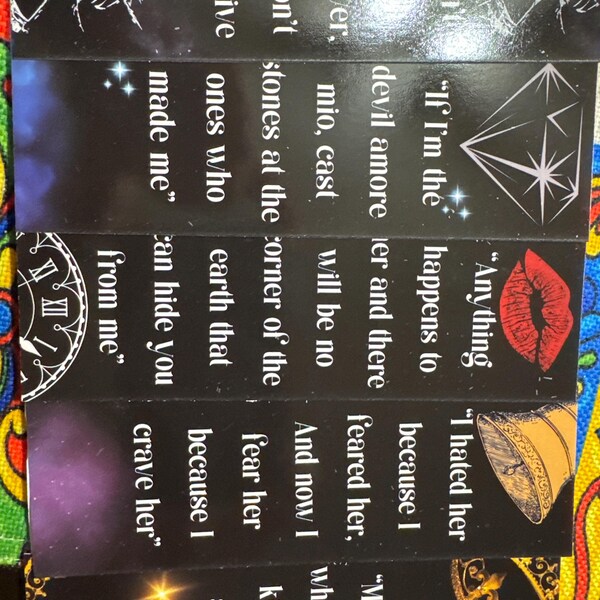 er,
on't
ive
“If I'm the
devil amore
mio, cast
stones at the
ones who
made me”
“Anything
happens to
er and there
will be no
orner of the
earth that
an hide you
from me”
“I hated her
because I
feared her,
And now I
fear her
because I
crave her”
“M
Wh
k